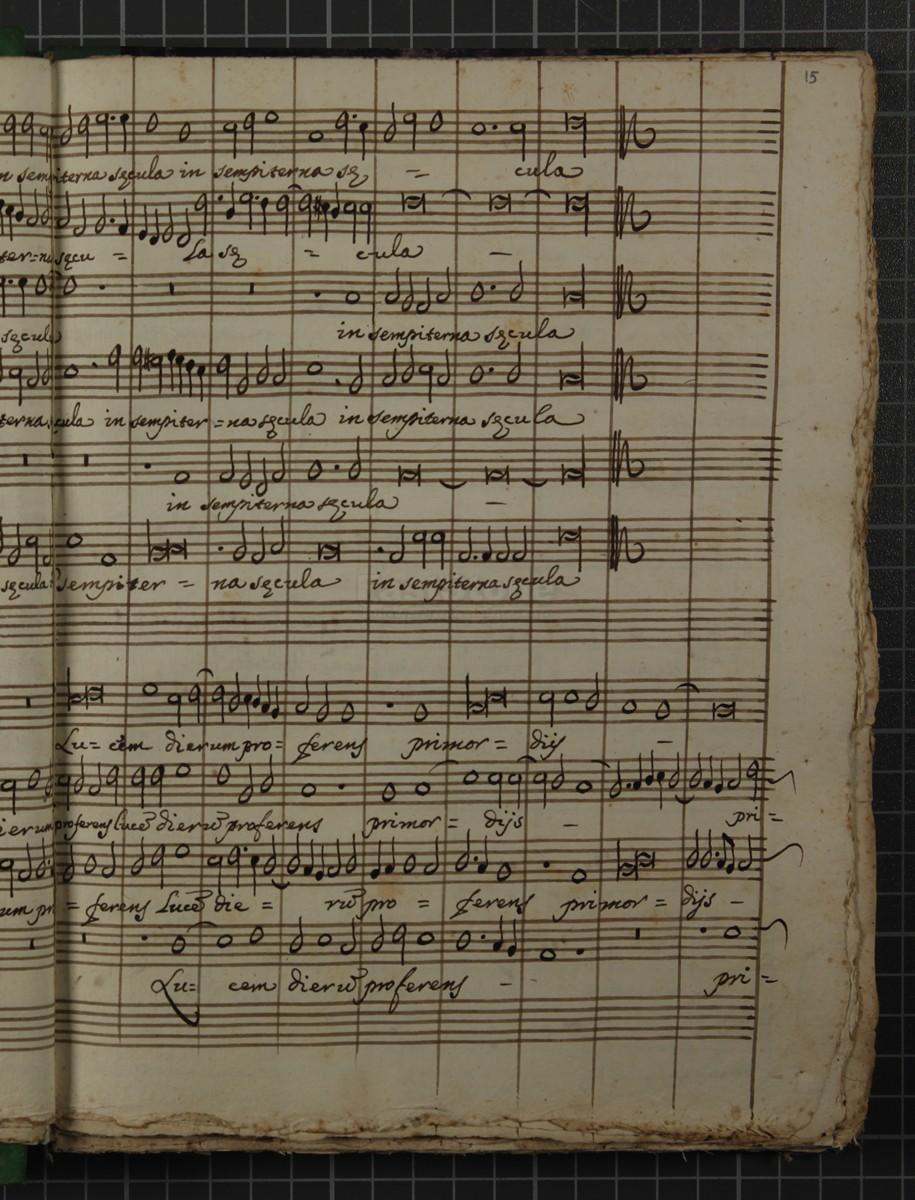 15
sempiterna sęcula in sempiterna sę = cula
sęcu = la sę = cula –
sęcula in sempiterna sęcula
cula in sempiter = na sęcula in sempiterna sęcula
in sempiterna sęcula –
sęcula sempiter = na sęcula in sempiterna sęcula
Lu= cem dierum pro= ferens primor = dijs –
proferens lucē dierū proferens primor = dijs – pri =
= ferens Lucē die = rū pro = ferens primor = dijs –
Lu= cem dierū proferens – pri =